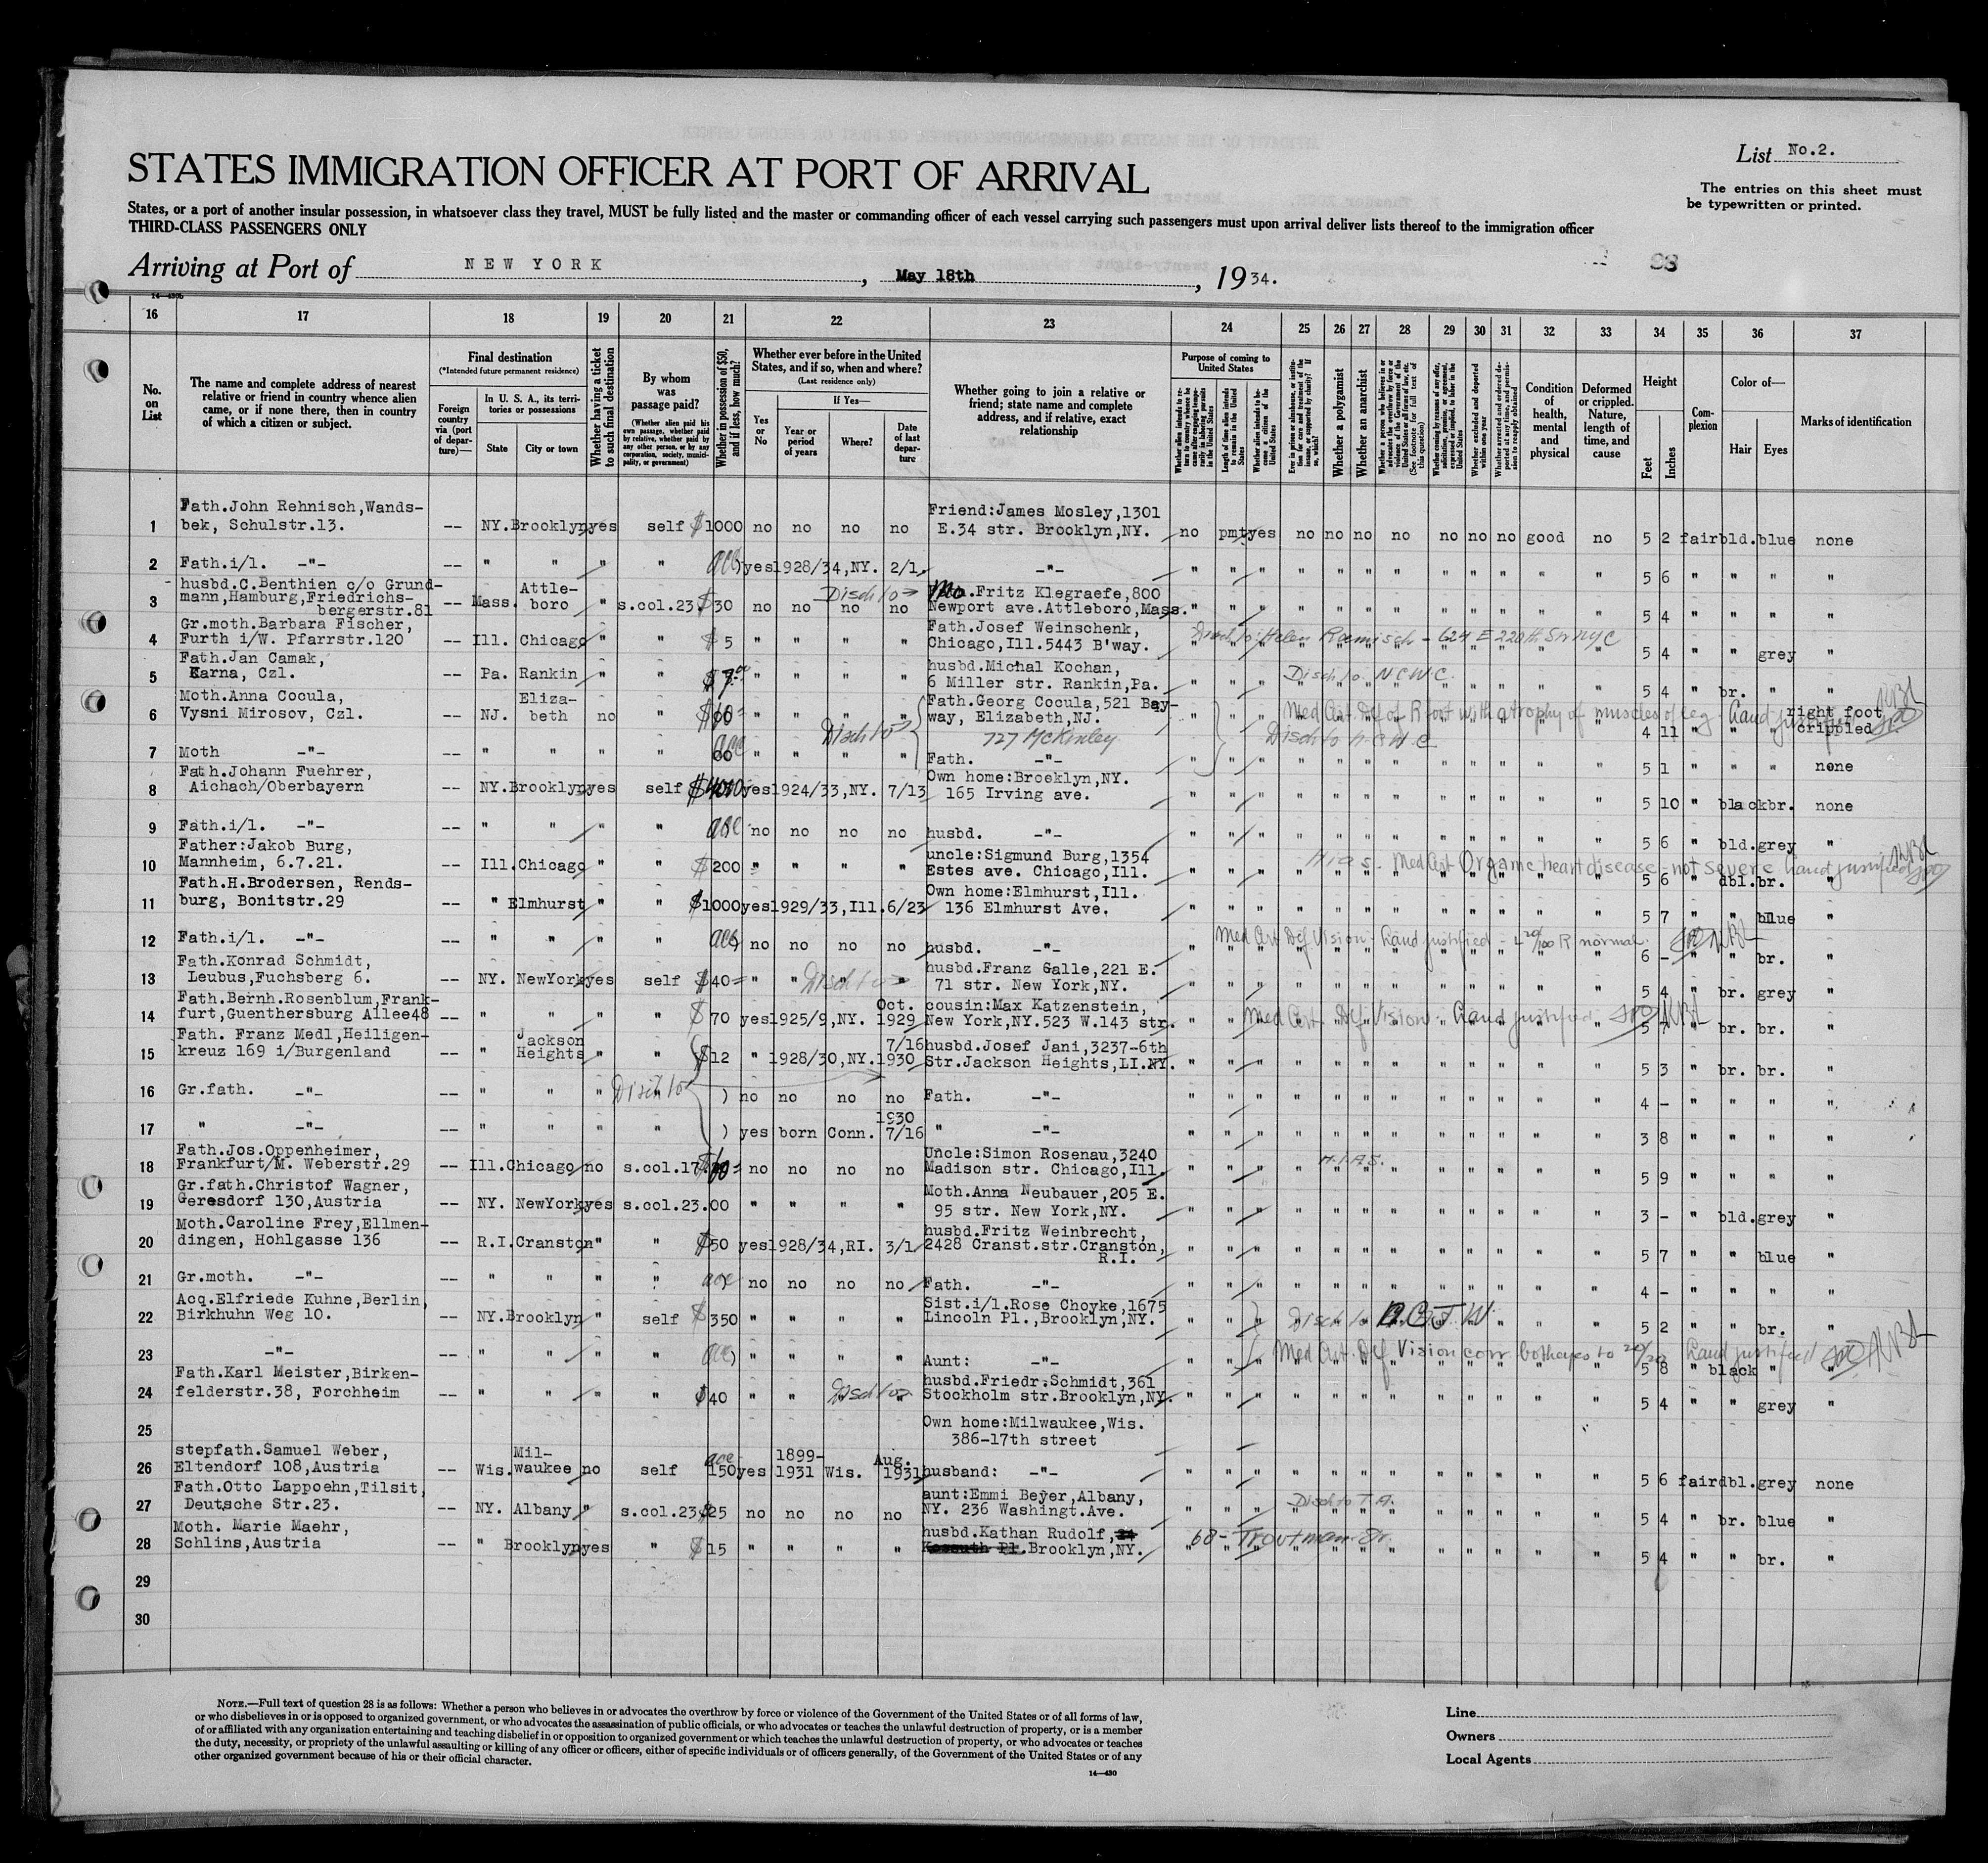 List No.2.
STATES IMMIGRATION OFFICER AT PORT OF ARRIVAL
The entries on this sheet must
be typewritten or printed.
States, or a port of another insular possession, in whatsoever class they travel, MUST be fully listed and the master or commanding officer of each vessel carrying such passengers must upon arrival deliver lists thereof to the immigration officer
THIRD-CLASS PASSENGERS ONLY
98
Arriving at Port of NEW YORK, May 18th, 1934.
14—430b
16 17 18 19 20 21 22 23 24 25 26 27 28 29 30 31 32 33 34 35 36 37
No. on List
The name and complete address of nearest relative or friend in country whence alien came, or if none there, then in country of which a citizen or subject.
Final destination
(*Intended future permanent residence)
Foreign country via (port of departure)—
In U. S. A., its territories or possessions
State
City or town
Whether having a ticket to such final destination
By whom was passage paid?
(Whether alien paid his own passage, whether paid by relative, whether paid by any other person, or by any corporation, society, municipality, or government)
Whether in possession of $50, and if less, how much?
Whether ever before in the United States, and if so, when and where?
(Last residence only)
Yes or No
If Yes—
Year or period of years
Where?
Date of last departure
Whether going to join a relative or friend; state name and complete address, and if relative, exact relationship
Purpose of coming to United States
Whether a polygamist
Whether an anarchist
Condition of health, mental and physical
Deformed or crippled. Nature, length of time, and cause
Height
Feet
Inches
Complexion
Color of—
Hair
Eyes
Marks of identification
1 Fath.John Rehnisch,Wands-
bek, Schulstr.13. -- NY. Brooklyn yes self $1000 no no no no Friend:James Mosley,1301
E.34 str. Brooklyn,NY. no pmt yes no no no no no no no good no 5 2 fair bld. blue none
2 Fath.i/l. -"- -- " " " " yes 1928/34,NY. 2/1 -"- " " " " " " " " " " " " 5 6 " " " "
3 husbd.C.Benthien c/o Grund-
mann,Hamburg,Friedrichs-
bergerstr.81 -- Mass. Attle-
boro " s.col.23. $30 no no no no Disch to Fritz Klegraefe,800
Newport ave.Attleboro,Mass. " " " " " " " " " " " " 5 4 " " " "
4 Gr.moth.Barbara Fischer,
Furth i/W. Pfarrstr.120 -- Ill. Chicago " " $5 " " " " Fath.Josef Weinschenk,
Chicago,Ill.5443 B'way. 624 E 220th St NYC 5 4 " " grey "
5 Fath.Jan Camak,
Karna, Czl. -- Pa. Rankin " " " " " " husbd.Michal Kochan,
6 Miller str. Rankin,Pa. Disch to N.C.W.C. 5 4 " br. " "
6 Moth.Anna Cocula,
Vysni Mirosov, Czl. -- NJ. Eliza-
beth no " $60 " " " " Disch to Fath.Georg Cocula,521 Bay-
way, Elizabeth,NJ. Med Cert. Def of R foot with atrophy of muscles of leg. 4 11 " " " right foot
crippled
727 McKinley Disch to N.C.W.C.
7 Moth -"- -- " " " " 00 " " " " Fath. -"- 5 1 " " " none
8 Fath.Johann Fuehrer,
Aichach/Oberbayern -- NY. Brooklyn yes self yes 1924/33,NY. 7/13 Own home:Brooklyn,NY.
165 Irving ave. 5 10 " black br. none
9 Fath.i/l. -"- -- " " " " no no no no husbd. -"- 5 6 " bld. grey "
10 Father:Jakob Burg,
Mannheim, 6.7.21. -- Ill. Chicago " " $200 " " " " uncle:Sigmund Burg,1354
Estes ave. Chicago,Ill. Hias. Med Cert Organic heart disease - not severe 5 6 " dbl. br. "
11 Fath.H.Brodersen, Rends-
burg, Bonitstr.29 -- " Elmhurst " " $1000 yes 1929/33,Ill. 6/23 Own home:Elmhurst,Ill.
136 Elmhurst Ave. 5 7 " " blue "
12 Fath.i/l. -"- -- " " " " no no no no husbd. -"- Med Cert Def Vision - L 20/100 R normal. 6 - " " br. "
13 Fath.Konrad Schmidt,
Leubus,Fuchsberg 6. -- NY. NewYork yes self $40 " " " " Disch to husbd.Franz Galle,221 E.
71 str. New York,NY. 5 4 " br. grey "
14 Fath.Bernh.Rosenblum,Frank-
furt,Guenthersburg Allee48 -- " " " " $70 yes 1925/9,NY. Oct.
1929 cousin:Max Katzenstein,
New York,NY.523 W.143 str. Med Cert. Def Vision 5 7 " br. br. "
15 Fath. Franz Medl,Heiligen-
kreuz 169 i/Burgenland -- " Jackson
Heights " " $12 " 1928/30,NY. 7/16
1930 husbd.Josef Jani,3237-6th
Str.Jackson Heights,LI.NY. 5 3 " br. br. "
16 Gr.fath. -"- -- " " " Disch to ) no no no no Fath. -"- 4 - " " " "
17 " -"- -- " " " " ) yes born Conn. 1930
7/16 " -"- 3 8 " " " "
18 Fath.Jos.Oppenheimer,
Frankfurt/M. Weberstr.29 -- Ill. Chicago no s.col.17. no no no no Uncle:Simon Rosenau,3240
Madison str. Chicago,Ill. H.I.A.S. 5 9 " " " "
19 Gr.fath.Christof Wagner,
Geresdorf 130,Austria -- NY. NewYork yes s.col.23. 00 " " " " Moth.Anna Neubauer,205 E.
95 str. New York,NY. 3 - " bld. grey "
20 Moth.Caroline Frey,Ellmen-
dingen, Hohlgasse 136 -- R.I. Cranston " " $50 yes 1928/34,RI. 3/1 husbd.Fritz Weinbrecht,
2428 Cranst.str.Cranston,
R.I. 5 7 " " blue "
21 Gr.moth. -"- -- " " " " no no no no Fath. -"- 4 - " " " "
22 Acq.Elfriede Kuhne,Berlin,
Birkhuhn Weg 10. -- NY. Brooklyn " self $350 " " " " Sist.i/l.Rose Choyke,1675
Lincoln Pl.,Brooklyn,NY. Disch to 5 2 " " br. "
23 -"- -- " " " " " " " " Aunt: -"- Med Cert. Def Vision corr. both eyes to 20/30 5 8 " black " "
24 Fath.Karl Meister,Birken-
felderstr.38, Forchheim -- " " " " $40 " " " " Disch to husbd.Friedr.Schmidt,361
Stockholm str.Brooklyn,NY. 5 4 " " grey "
25 Own home:Milwaukee,Wis.
386-17th street
26 stepfath.Samuel Weber,
Eltendorf 108,Austria -- Wis. Mil-
waukee no self 150 yes 1899-
1931 Wis. Aug.
1931 husband: -"- 5 6 fair dbl. grey none
27 Fath.Otto Lappoehn,Tilsit,
Deutsche Str.23. -- NY. Albany " s.col.23 $25 no no no no aunt:Emmi Beyer,Albany,
NY. 236 Washingt.Ave. Disch to T.A. 5 4 " br. blue "
28 Moth. Marie Maehr,
Schlins,Austria -- " Brooklyn yes " $15 " " " " husbd.Kathan Rudolf, 24
Kossuth Pl. Brooklyn,NY. 68- Troutman St. 5 4 " " br. "
29
30
NOTE.—Full text of question 28 is as follows: Whether a person who believes in or advocates the overthrow by force or violence of the Government of the United States or of all forms of law,
or who disbelieves in or is opposed to organized government, or who advocates the assassination of public officials, or who advocates or teaches the unlawful destruction of property, or is a member
of or affiliated with any organization entertaining and teaching disbelief in or opposition to organized government or which teaches the unlawful destruction of property, or who advocates or teaches
the duty, necessity, or propriety of the unlawful assaulting or killing of any officer or officers, either of specific individuals or of officers generally, of the Government of the United States or of any
other organized government because of his or their official character.
14—430
Line
Owners
Local Agents